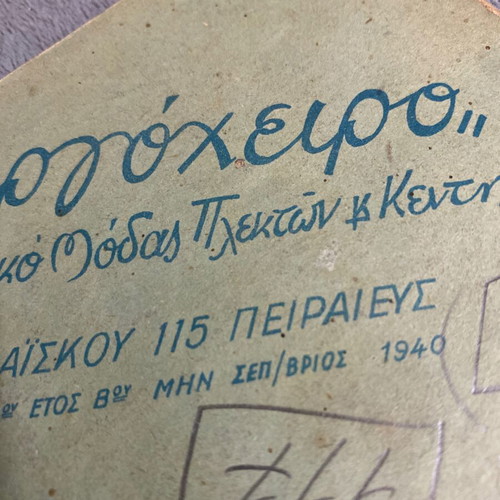 ργόχειρο„
κό Μόδας Πλεκτῶν & Κεντη
ΑΪΣΚΟΥ 115 ΠΕΙΡΑΙΕΥΣ
ου ΕΤΟΣ Βου ΜΗΝ ΣΕΠ/ΒΡΙΟΣ 1940